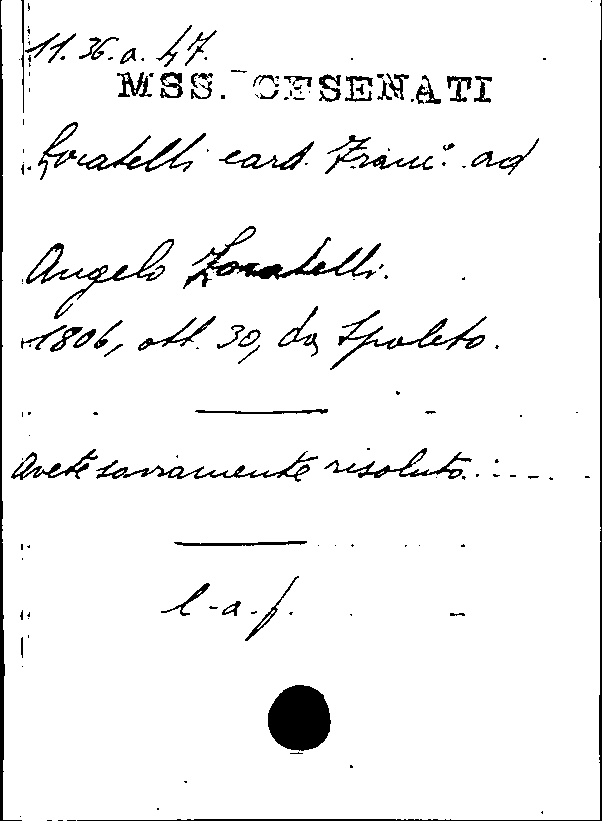 11.36.a.47.
MSS. CESENATI
Locatelli card. Franc.° ad
Angelo Locatelli.
1806, ott. 30, da Spoleto.
Avete saviamente risoluto......
l-a-f.